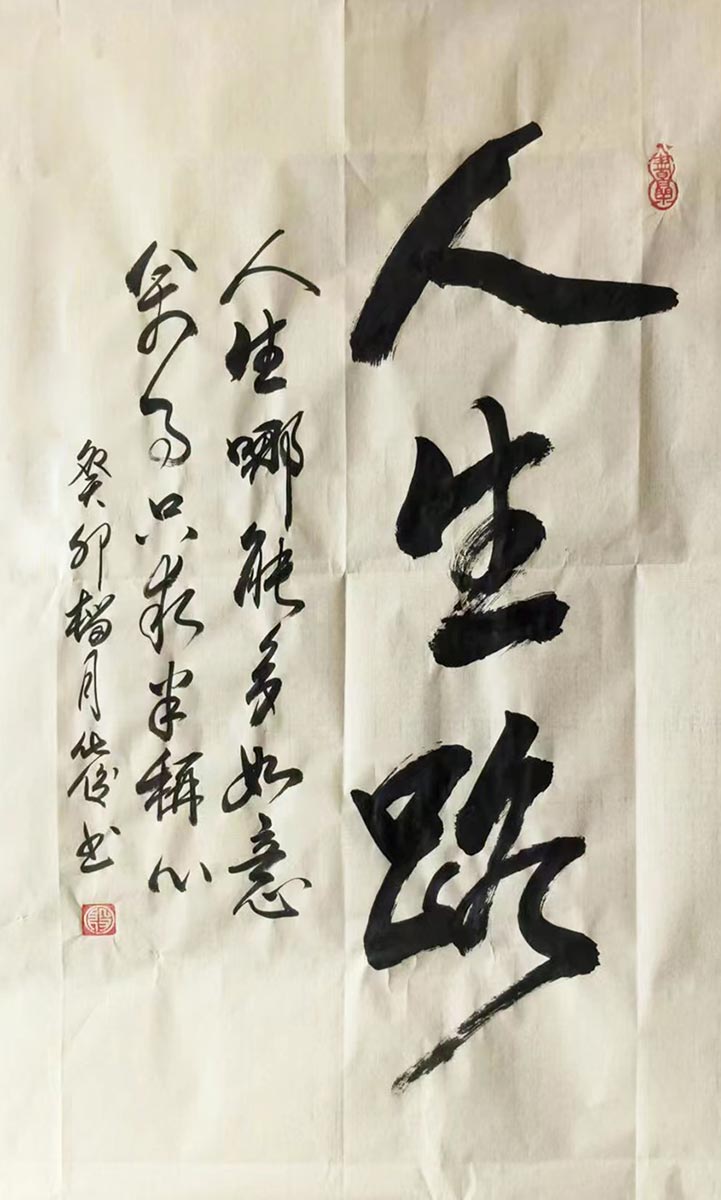 人生路
人生哪能多如意
萬事只求半稱心
癸卯榴月 书